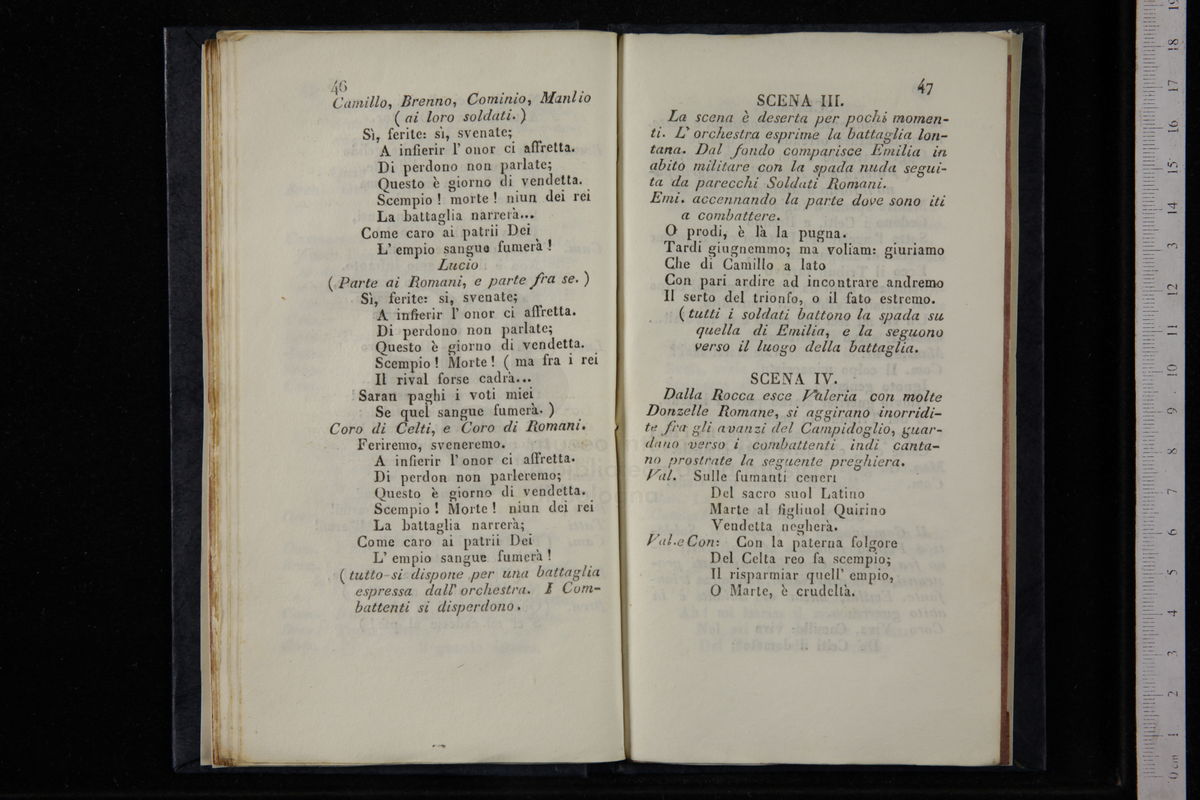 46
Camillo, Brenno, Cominio, Manlio
( ai loro soldati. )
Sì, ferite: sì, svenate;
A infierir l' onor ci affretta.
Di perdono non parlate;
Questo è giorno di vendetta.
Scempio ! morte ! niun dei rei
La battaglia narrerà...
Come caro ai patrii Dei
L' empio sangue fumerà !
Lucio
( Parte ai Romani, e parte fra se. )
Sì, ferite: si, svenate;
A infierir l' onor ci affretta.
Di perdono non parlate;
Questo è giorno di vendetta.
Scempio ! Morte ! ( ma fra i rei
Il rival forse cadrà...
Saran paghi i voti miei
Se quel sangue fumerà. )
Coro di Celti, e Coro di Romani.
Feriremo, sveneremo.
A infierir l' onor ci affretta.
Di perdon non parleremo;
Questo è giorno di vendetta.
Scempio ! Morte ! niun dei rei
La battaglia narrerà;
Come caro ai patrii Dei
L' empio sangue fumerà !
( tutto si dispone per una battaglia
espressa dall' orchestra. I Com-
battenti si disperdono.
47
SCENA III.
La scena è deserta per pochi momen-
ti. L' orchestra esprime la battaglia lon-
tana. Dal fondo comparisce Emilia in
abito militare con la spada nuda segui-
ta da parecchi Soldati Romani.
Emi. accennando la parte dove sono iti
a combattere.
O prodi, è là la pugna.
Tardi giugnemmo; ma voliam: giuriamo
Che di Camillo a lato
Con pari ardire ad incontrare andremo
Il serto del trionfo, o il fato estremo.
( tutti i soldati battono la spada su
quella di Emilia, e la seguono
verso il luogo della battaglia.
SCENA IV.
Dalla Rocca esce Valeria con molte
Donzelle Romane, si aggirano inorridi-
te fra gli avanzi del Campidoglio, guar-
dano verso i combattenti indi canta-
no prostrate la seguente preghiera.
Val. Sulle fumanti ceneri
Del sacro suol Latino
Marte al figliuol Quirino
Vendetta negherà.
Val.e Con: Con la paterna folgore
Del Celta reo fa scempio;
Il risparmiar quell' empio,
O Marte, è crudeltà.